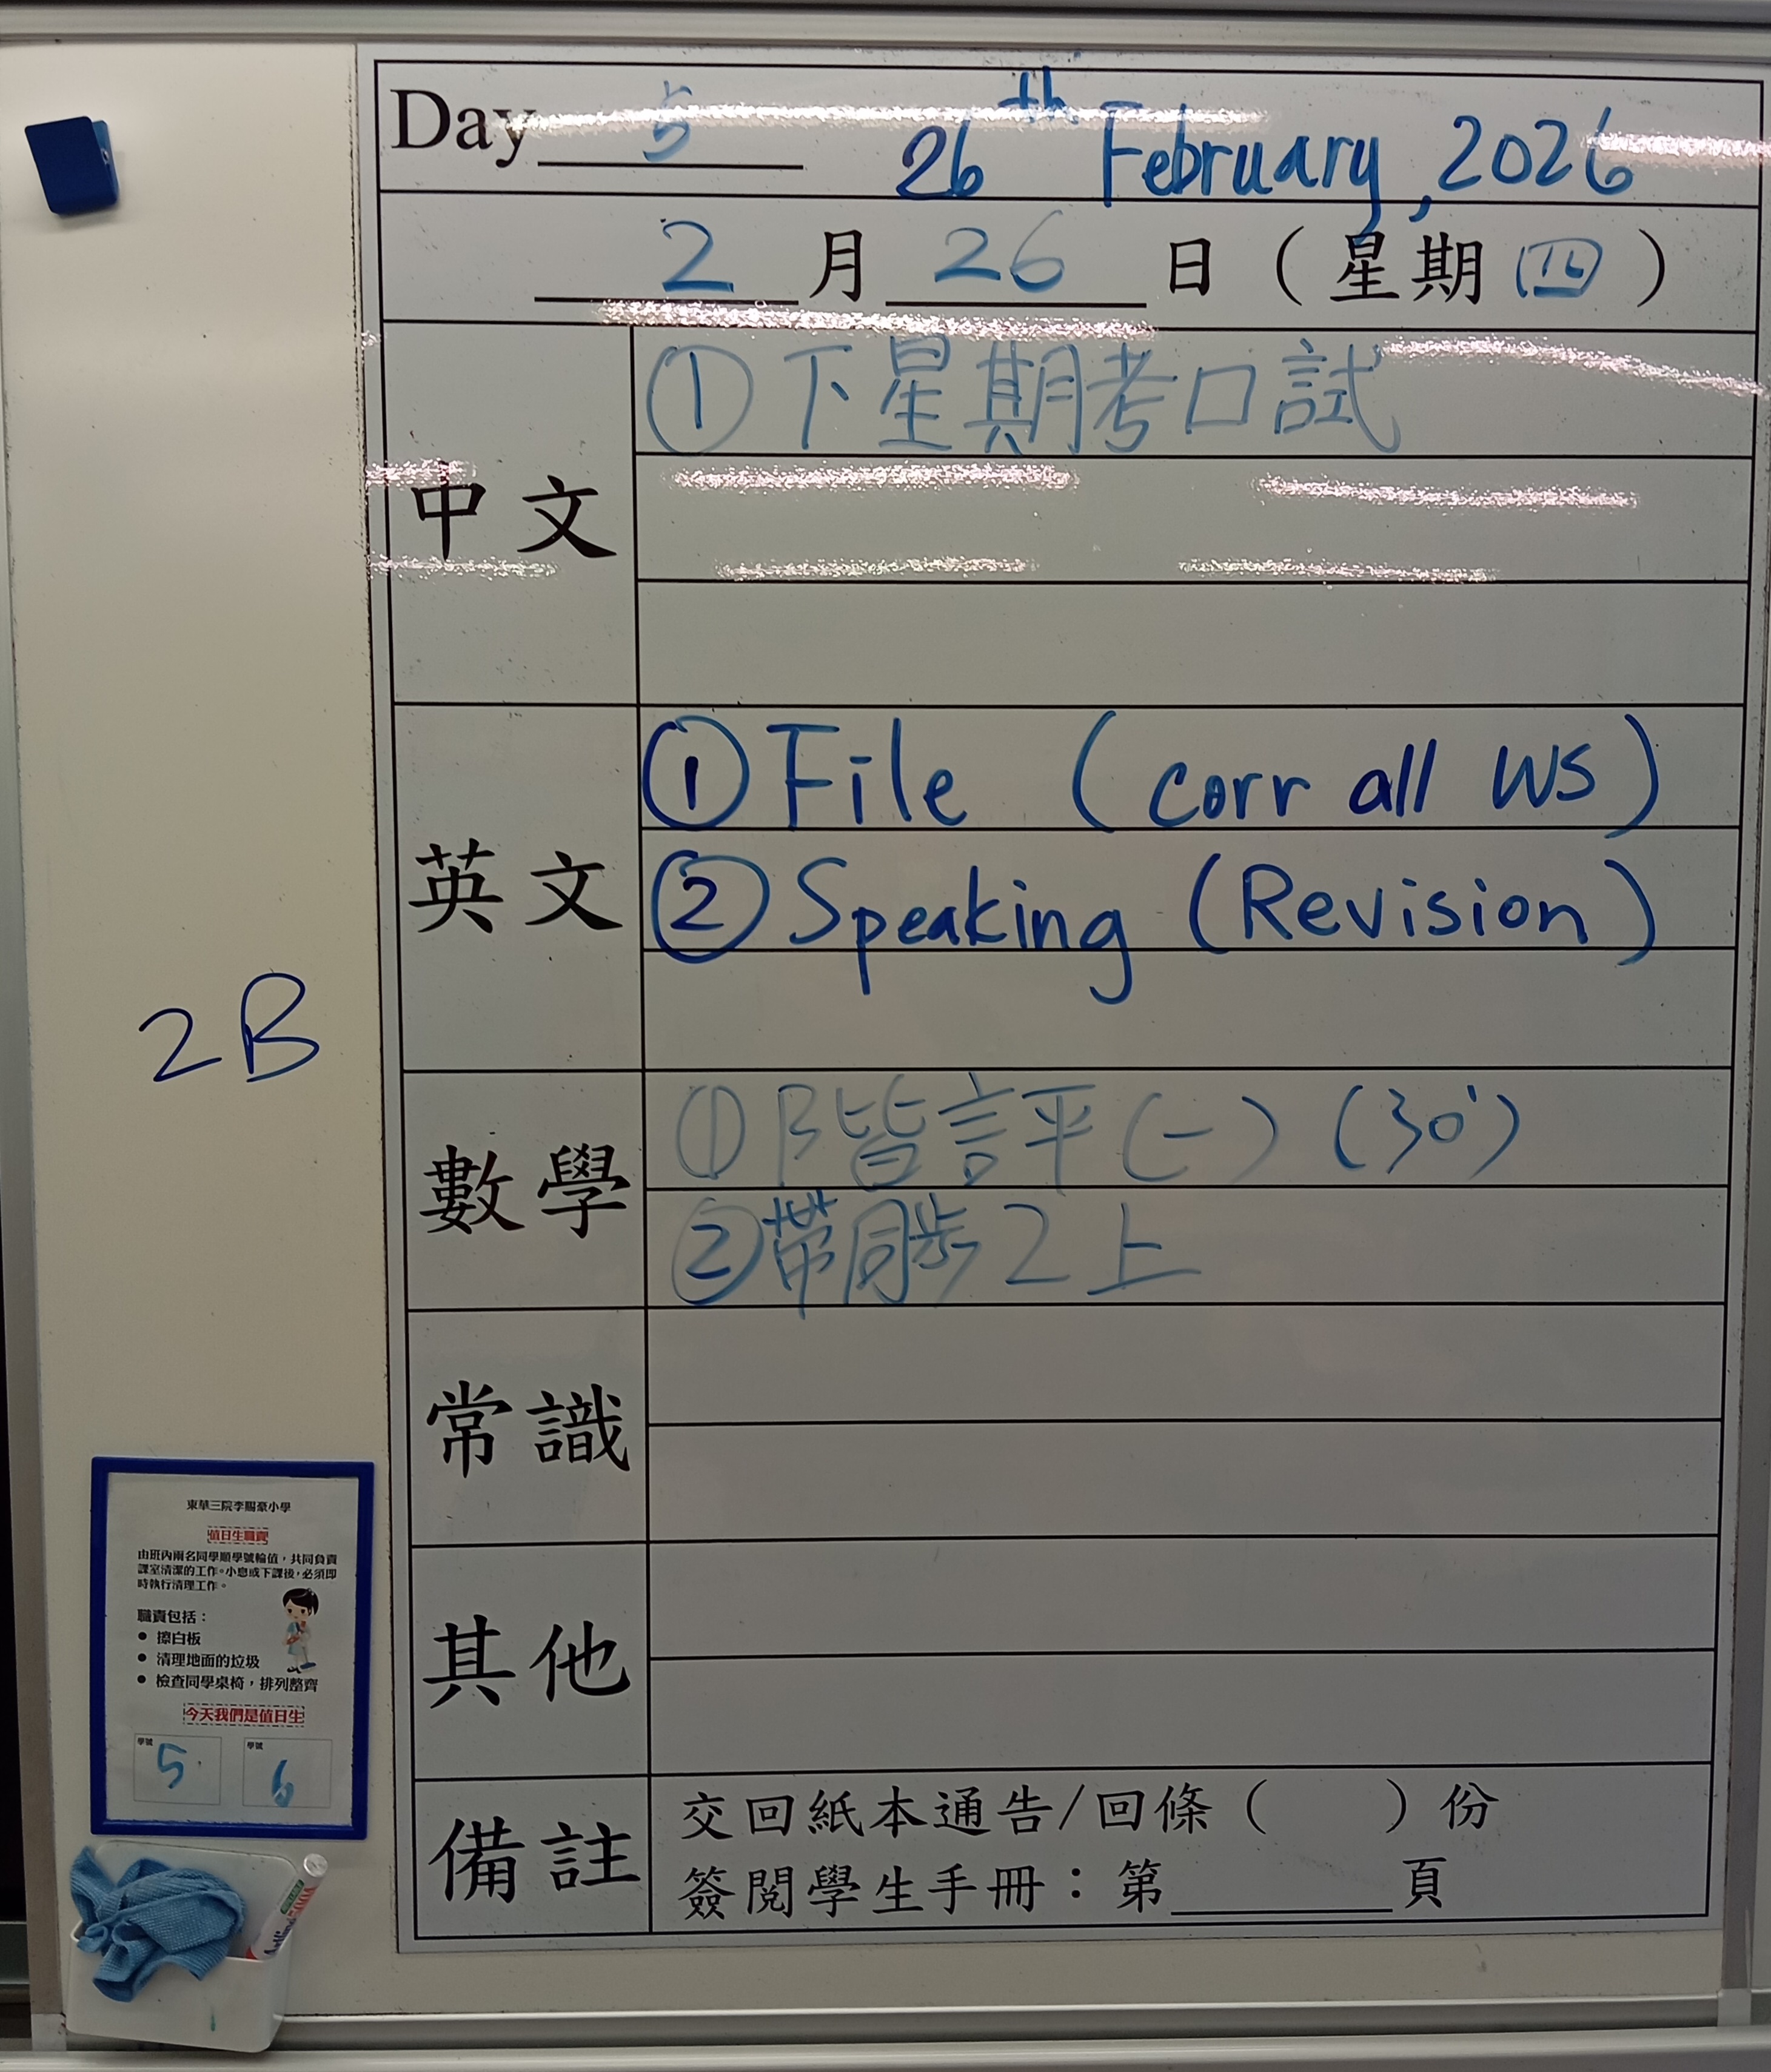 Day 5 26th February, 2026
2 月 26 日 ( 星期 四 )
中文
① 下星期考口試
英文
① File ( corr all WS )
② Speaking (Revision)
2B
數學
① 階評 (一) (30')
② 帶同步 2上
常識
其他
備註
交回紙本通告/回條 ( ) 份
簽閱學生手冊：第______頁
東華三院李賜豪小學
值日生職責
由班內兩名同學順學號輪值，共同負責
課室清潔的工作。小息或下課後，必須即
時執行清理工作。
職責包括：
● 擦白板
● 清理地面的垃圾
● 檢查同學桌椅，排列整齊
今天我們是值日生
學號 5 學號 6